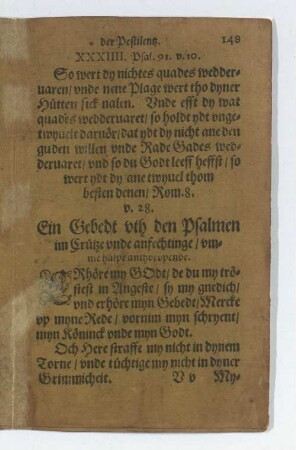 der Pestilentz. 148
XXXIIII. Psal. 91. v. 10.
So wert dy nichtes quades wedder-
uaren/ vnde nene Plage wert tho dyner
Hütten sick nalen. Vnde efft dy wat
quades wedderuaret/ so holdt ydt vnge-
twyuelt daruör/ dat ydt dy nicht ane den
guden willen vnde Rade Gades wed-
deruaret/ vnd so du Godt leeff heffst/ so
wert ydt dy ane twyuel thom
besten denen/ Rom. 8.
v. 28.
Ein Gebedt vth den Psalmen
im Crütze vnde anfechtinge/ vm-
me hülpe anthoropende.
ERhöre my GOdt/ de du my trö-
stest in Angeste/ sy my gnedich/
vnd erhöre myn Gebedt/ Mercke
vp myne Rede/ vornim myn schryent/
myn Köninck vnde myn Godt.
Och Here straffe my nicht in dynem
Torne/ vnde tüchtige my nicht in dyner
Grimmicheit. V v My-